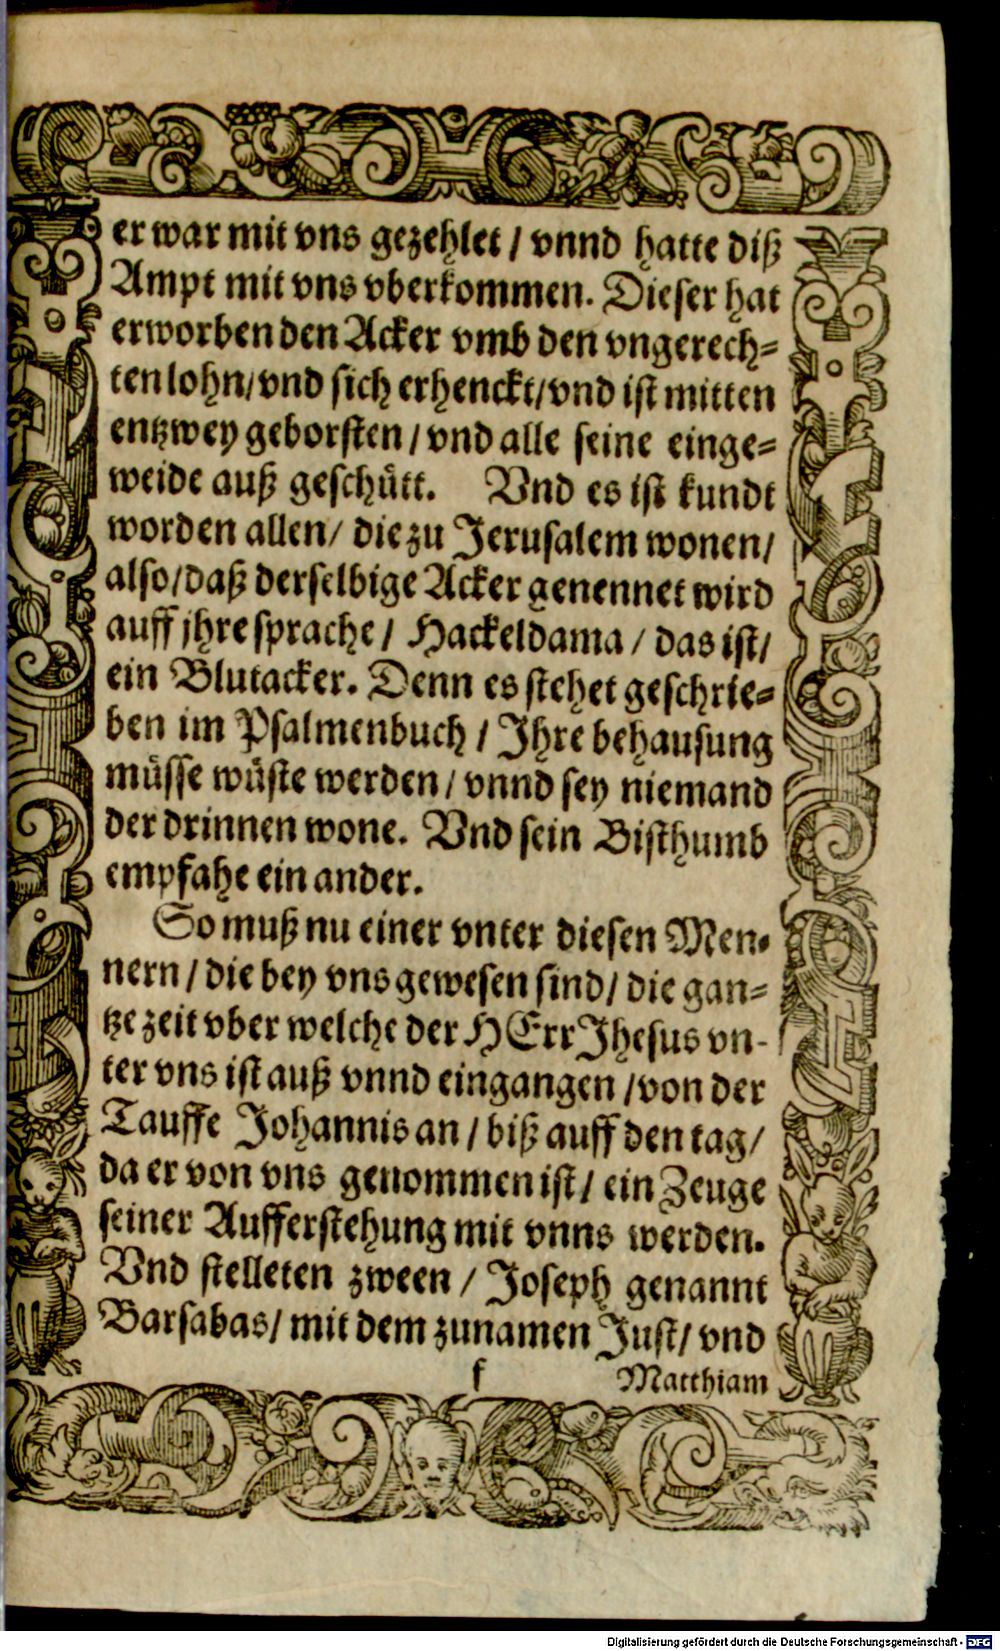 er war mit vns gezehlet / vnnd hatte diß
Ampt mit vns vberkommen. Dieser hat
erworben den Acker vmb den vngerech=
ten lohn/vnd sich erhenckt/vnd ist mitten
entzwey geborsten / vnd alle seine einge=
weide auß geschütt. Vnd es ist kundt
worden allen/ die zu Jerusalem wonen/
also/daß derselbige Acker genennet wird
auff jhre sprache / Hackeldama / das ist/
ein Blutacker. Denn es stehet geschrie=
ben im Psalmenbuch / Jhre behausung
müsse wüste werden / vnnd sey niemand
der drinnen wone. Vnd sein Bisthumb
empfahe ein ander.
So muß nu einer vnter diesen Men=
nern / die bey vns gewesen sind/ die gan=
tze zeit vber welche der HErr Jhesus vn-
ter vns ist auß vnnd eingangen /von der
Tauffe Johannis an / biß auff den tag/
da er von vns genommen ist/ ein Zeuge
seiner Aufferstehung mit vnns werden.
Vnd stelleten zween / Joseph genannt
Barsabas/ mit dem zunamen Just/ vnd
f Matthiam
Digitalisierung gefördert durch die Deutsche Forschungsgemeinschaft - DFG